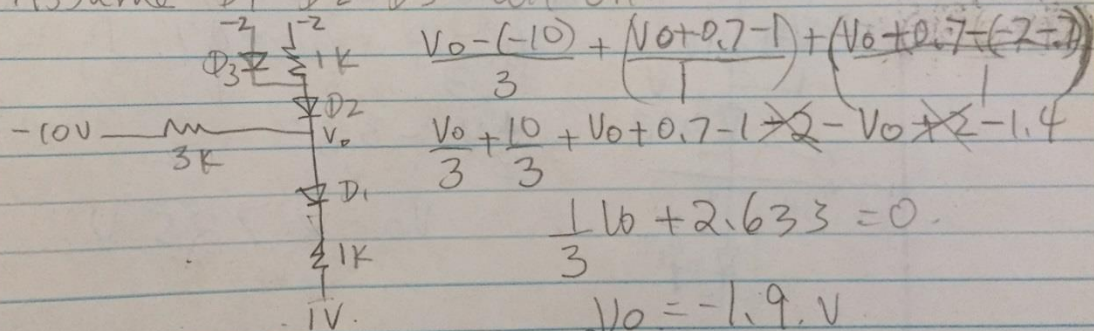 -2 -2
D3 1K
D2
-10V Vo
3K
D1
1K
1V.
Vo-(-10) / 3 + (Vo+0.7-1 / 1) + (
Vo/3 + 10/3 + Vo+0.7-1+2-Vo+2-1.4
1/3 Vo + 2.633 = 0.
Vo = -1.9. V